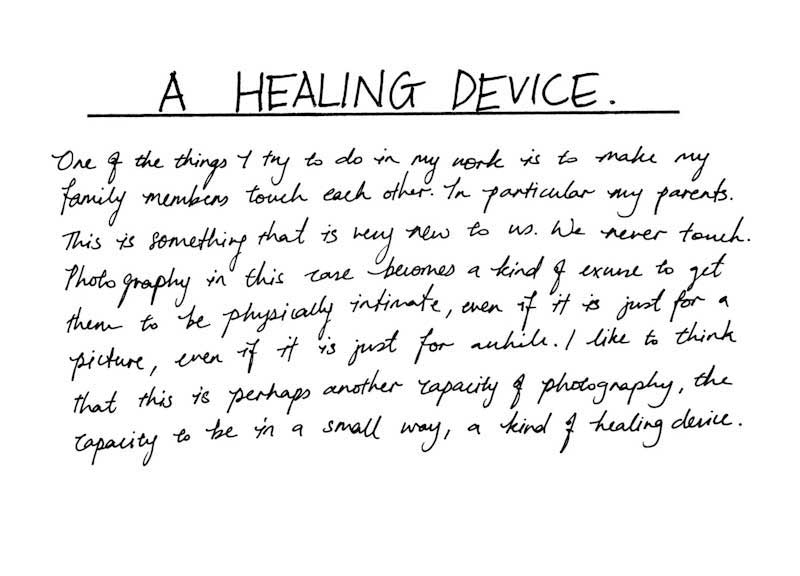 A HEALING DEVICE.
One of the things I try to do in my work is to make my
family members touch each other. In particular my parents.
This is something that is very new to us. We never touch.
Photography in this case becomes a kind of excuse to get
them to be physically intimate, even if it is just for a
picture, even if it is just for awhile. I like to think
that this is perhaps another capacity of photography, the
capacity to be in a small way, a kind of healing device.